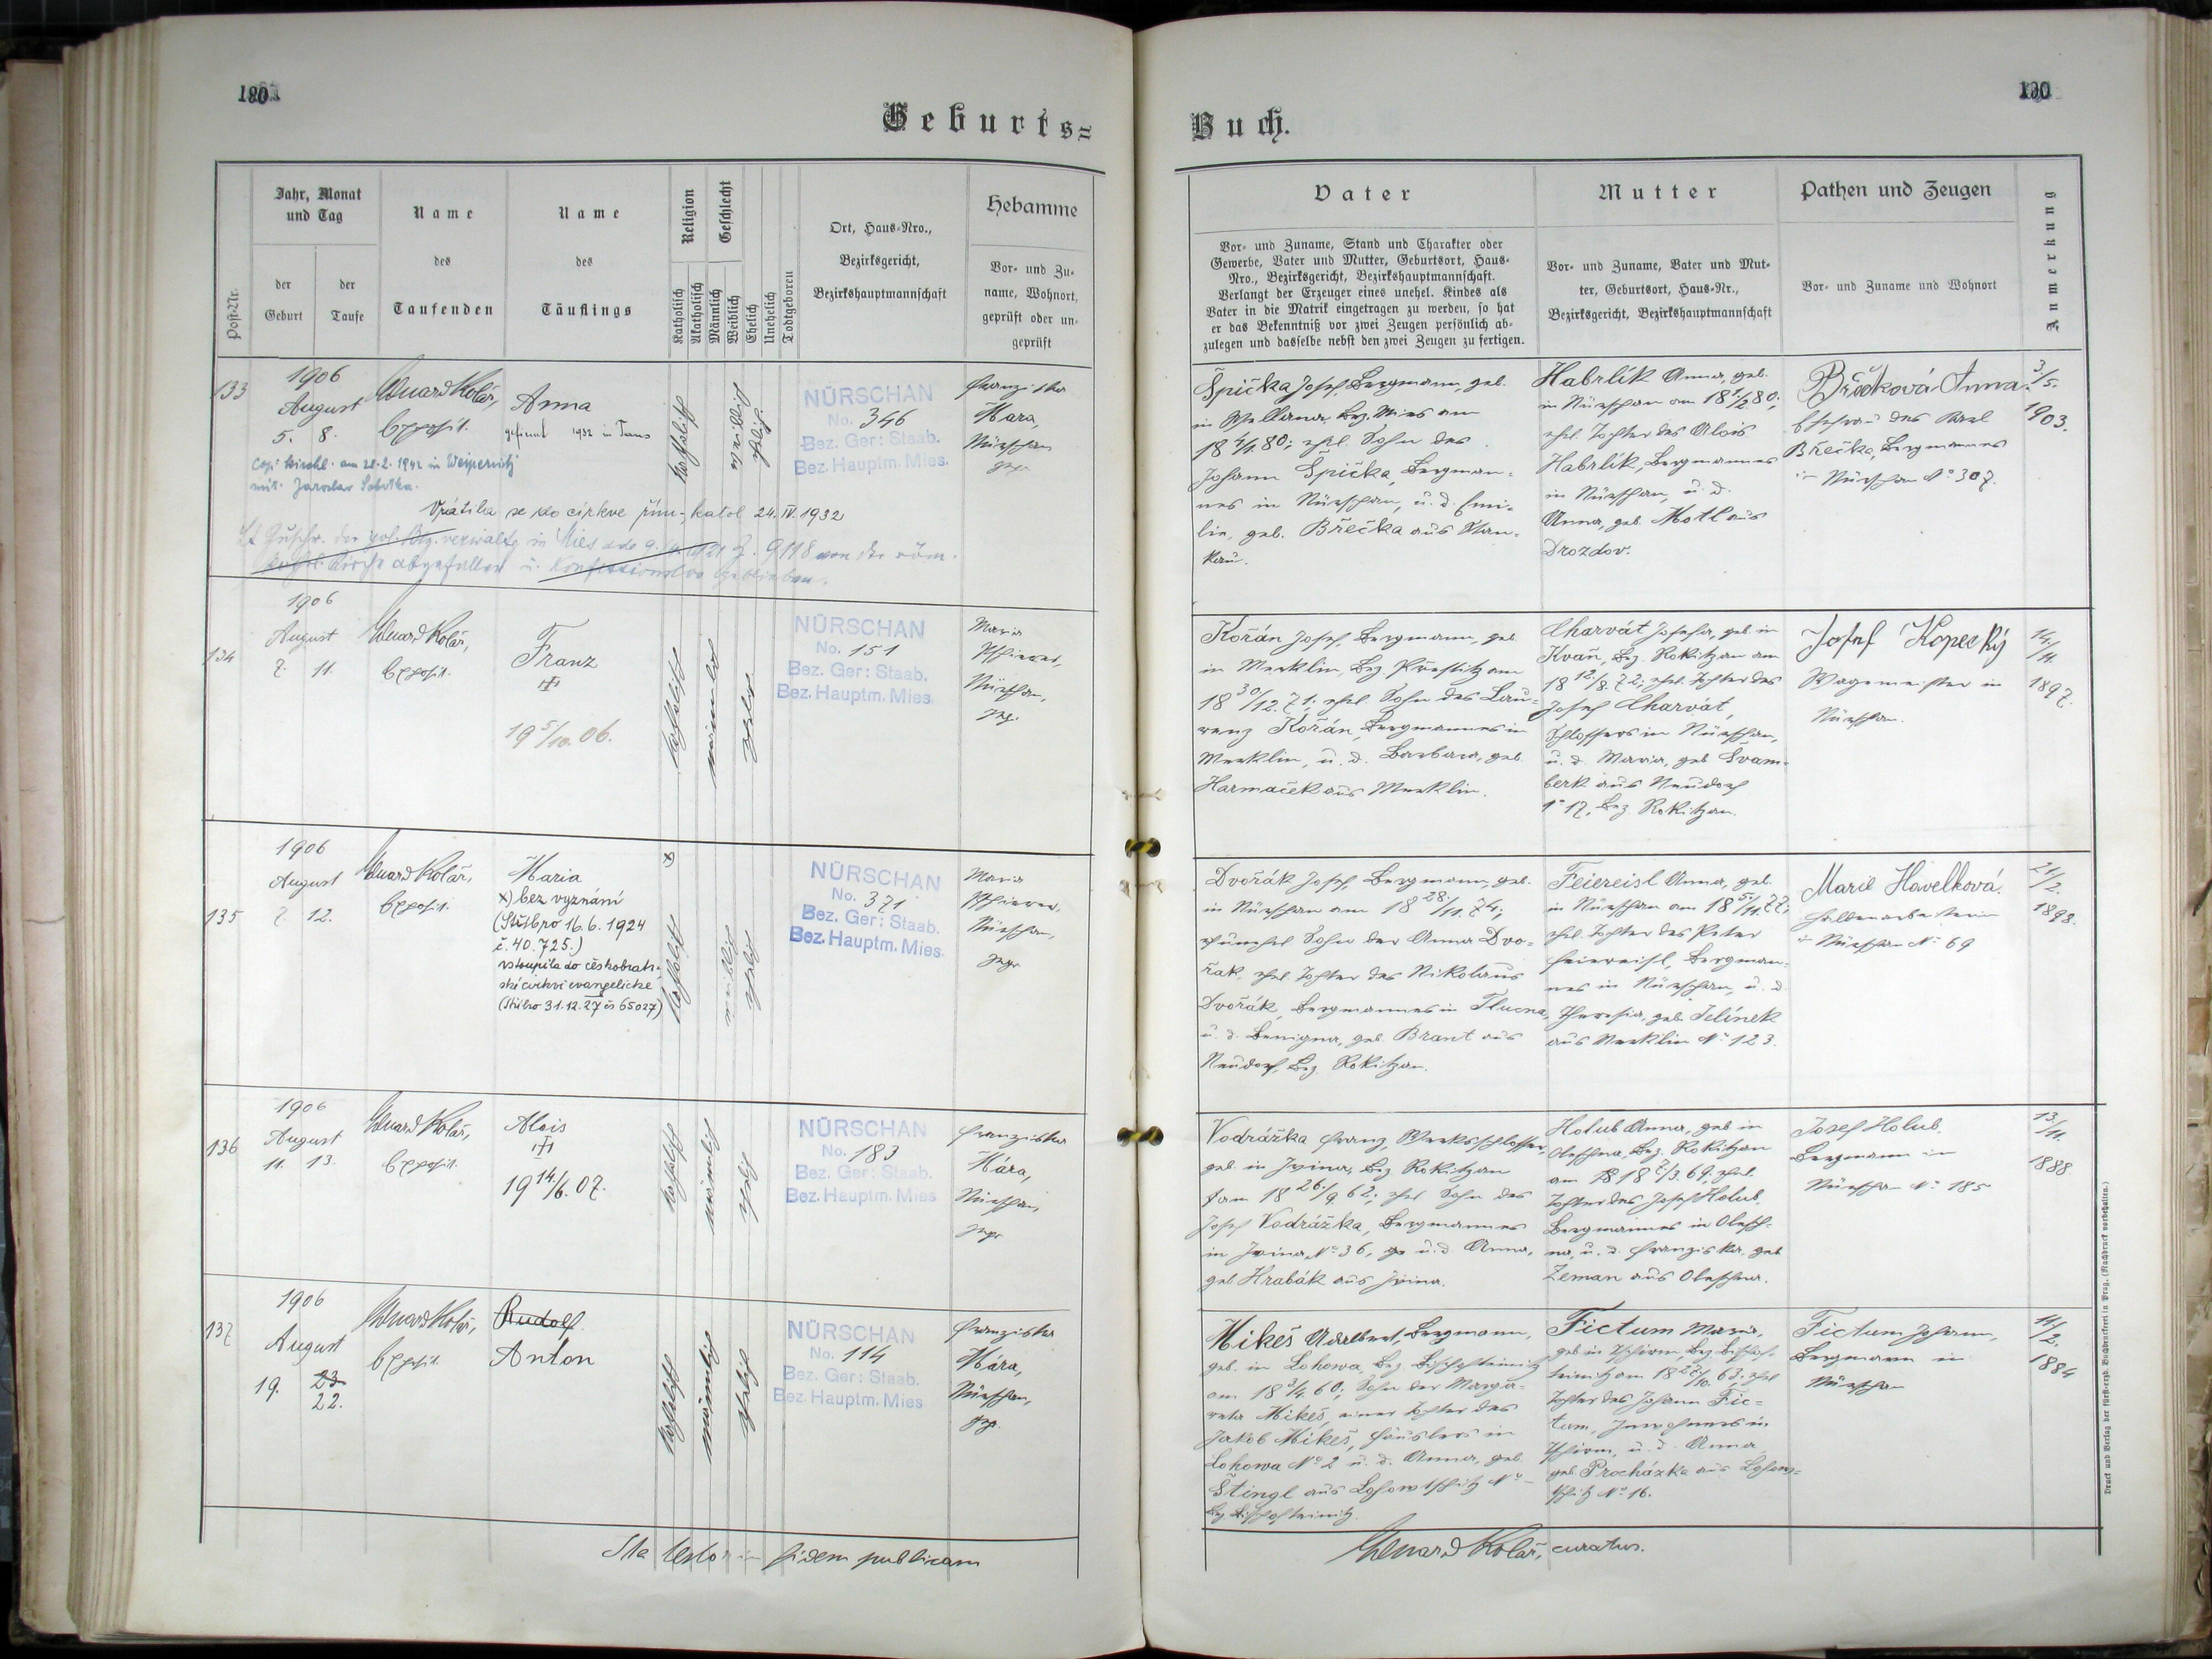 190
190
Geburts=
Buch.
Post-Nr.
Jahr, Monat
und Tag
der
Geburt
der
Taufe
Name
des
Taufenden
Name
des
Täuflings
Religion
Katholisch
Akatholisch
Geschlecht
Männlich
Weiblich
Ehelich
Unehelich
Todtgeboren
Ort, Haus-Nro.,
Bezirksgericht,
Bezirkshauptmannschaft
Hebamme
Vor- und Zu-
name, Wohnort,
geprüft oder un-
geprüft
Vater
Vor- und Zuname, Stand und Charakter oder
Gewerbe, Vater und Mutter, Geburtsort, Haus-
Nro., Bezirksgericht, Bezirkshauptmannschaft.
Verlangt der Erzeuger eines unehel. Kindes als
Vater in die Matrik eingetragen zu werden, so hat
er das Bekenntniß vor zwei Zeugen persönlich ab-
zulegen und dasselbe nebst den zwei Zeugen zu fertigen.
Mutter
Vor- und Zuname, Vater und Mut-
ter, Geburtsort, Haus-Nr.,
Bezirksgericht, Bezirkshauptmannschaft
Pathen und Zeugen
Vor- und Zuname und Wohnort
Anmerkung
133
1906
August
5. 8.
Eduard Kolář,
Exposit.
Anna
gefirmt 1932 in Taus
Cop. kirchl. am 28.2.1942 in Weipernitz
mit Jaroslav Sobotka.
Vrátila se do církve řím. katol 24.IV.1932
Z. 9118 von der röm.
Kirche abgefallen u. Konfessionslos geblieben.
katholisch
weiblich
ehelich
NÜRSCHAN
No. 346
Bez. Ger: Staab.
Bez. Hauptm. Mies.
Franziska
Hára,
Nürschan
gepr.
Špička Josef, Bergmann, geb.
in Wellana, Bez. Mies am
18 4/4. 80; ehel. Sohn des
Johann Špička, Bergman-
nes in Nürschan, u. d. Emi-
lie, geb. Břečka aus Stan-
kau.
Habrlík Anna, geb.
in Nürschan am 18 1/2 80;
ehel. Tochter des Alois
Habrlík, Bergmannes
in Nürschan, u. d.
Anna, geb. Motl aus
Drozdov.
Břečková Anna
Ehefrau des Karl
Břečka, Bergmannes
in Nürschan No 307.
3/5.
1903.
134
1906
August
7. 11.
Eduard Kolář,
Exposit.
Franz
19 5/10. 06.
katholisch
männlich
ehelich
NÜRSCHAN
No. 151
Bez. Ger: Staab.
Bez. Hauptm. Mies
Maria
Nürschan,
gepr.
Kořán Josef, Bergmann, geb
in Merklin, Bez. Přestitz am
18 30/12. 71; ehel. Sohn des Lau-
renz Kořán, Bergmannes in
Merklin, u. d. Barbara, geb.
Harmáček aus Merklin.
Charvát Josefa, geb. in
Kvaň, Bez. Rokitzan am
18 12/8. 72; ehel. Tochter des
Josef Charvát,
Schlossers in Nürschan,
u. d. Maria, geb Švam-
berk aus Neudorf
No 17, Bez Rokitzan.
Josef Kopecký
Wagemeister in
Nürschan.
14/11.
1897.
135
1906
August
7. 12.
Eduard Kolář,
Exposit.
Maria
x) bez vyznání
(Stříbro 16.6.1924
č. 40.725.)
vstoupila do českobratr-
ské církve evangelické
(Stříbro 31.12.27 čs 65027)
x)
katholisch
weiblich
ehelich
NÜRSCHAN
No. 371
Bez. Ger: Staab.
Bez. Hauptm. Mies.
Maria
Nürschan,
gepr
Dvořák Josef, Bergmann, geb.
in Nürschan am 18 28/11. 74;
unehel Sohn der Anna Dvo-
řák, ehel. Tochter des Nikolaus
Dvořák, Bergmannes in Tlucna,
u. d. Benigna, geb. Brant aus
Neudorf, Bez. Rokitzan.
Feiereisl Anna, geb.
in Nürschan am 18 5/11. 77;
ehel. Tochter des Peter
Feiereisl, Bergman-
nes in Nürschan, u. d.
Theresia, geb. Jelínek
aus Merklin No 123.
Marie Havelková.
Haldenarbeiterin
in Nürschan No 69
21/2.
1898.
136
1906
August
11. 13.
Eduard Kolář,
Exposit.
Alois
19 14/6. 07.
katholisch
männlich
ehelich
NÜRSCHAN
No. 183
Bez. Ger: Staab.
Bez. Hauptm. Mies
Franziska
Hára,
Nürschan,
gepr
Vodrážka Franz, Werksschlosser,
geb. in Jvina, Bez Rokitzan
am 18 26/9 62; ehel Sohn des
Josef Vodrážka, Bergmannes
in Jvina, No 36, u. d. Anna,
geb Hrabák aus Jvina.
Holub Anna, geb in
Oleschna, Bez. Rokitzan
am 18 7/3. 69; ehel.
Tochter des Josef Holub,
Bergmannes in Olesch-
na, u. d. Franziska, geb
Zeman aus Oleschna.
Josef Holub.
Bergmann in
Nürschan No 185
13/11.
1888
137
1906
August
19. 23
22.
Eduard Kolář,
Exposit.
Rudolf.
Anton
katholisch
männlich
ehelich
NÜRSCHAN
No. 114
Bez. Ger: Staab.
Bez. Hauptm. Mies
Franziska
Hára,
Nürschan,
gepr.
Mikeš Adalbert, Bergmann,
geb. in Lohowa, Bez. Bischofteinitz
am 18 3/4. 60; Sohn der Marga-
reta Mikeš, einer Tochter des
Jakob Mikeš, Häuslers in
Lohowa No 2 u. d. Anna, geb.
Štingl aus Lohowtschitz No -
Bez Bischofteinitz.
Fictum Maria,
geb in Tschirm, Bez Bischof-
teinitz am 18 27/10. 63; ehel
Tochter des Johann Fic-
tum, Inwohners in
Tschirm, u. d. Anna
geb. Procházka aus Lohow-
tschitz No 16.
Fictum Johann,
Bergmann in
Nürschan
11/2.
1884
Ita testor in fidem publicam
Eduard Kolář, curatus.
Druck und Verlag der fürst-erzb. Buchdruckerei in Prag. (Nachdruck vorbehalten.)